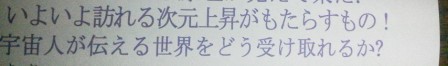 いよいよ訪れる次元上昇がもたらすもの！
宇宙人が伝える世界をどう受け取れるか?